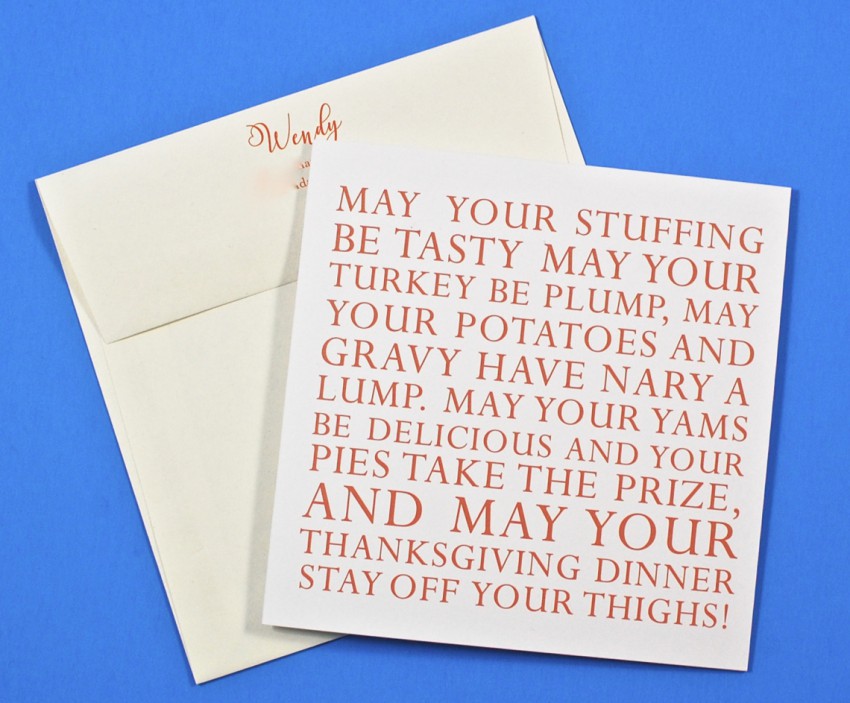 Wendy
MAY YOUR STUFFING
BE TASTY MAY YOUR
TURKEY BE PLUMP, MAY
YOUR POTATOES AND
GRAVY HAVE NARY A
LUMP. MAY YOUR YAMS
BE DELICIOUS AND YOUR
PIES TAKE THE PRIZE,
AND MAY YOUR
THANKSGIVING DINNER
STAY OFF YOUR THIGHS!